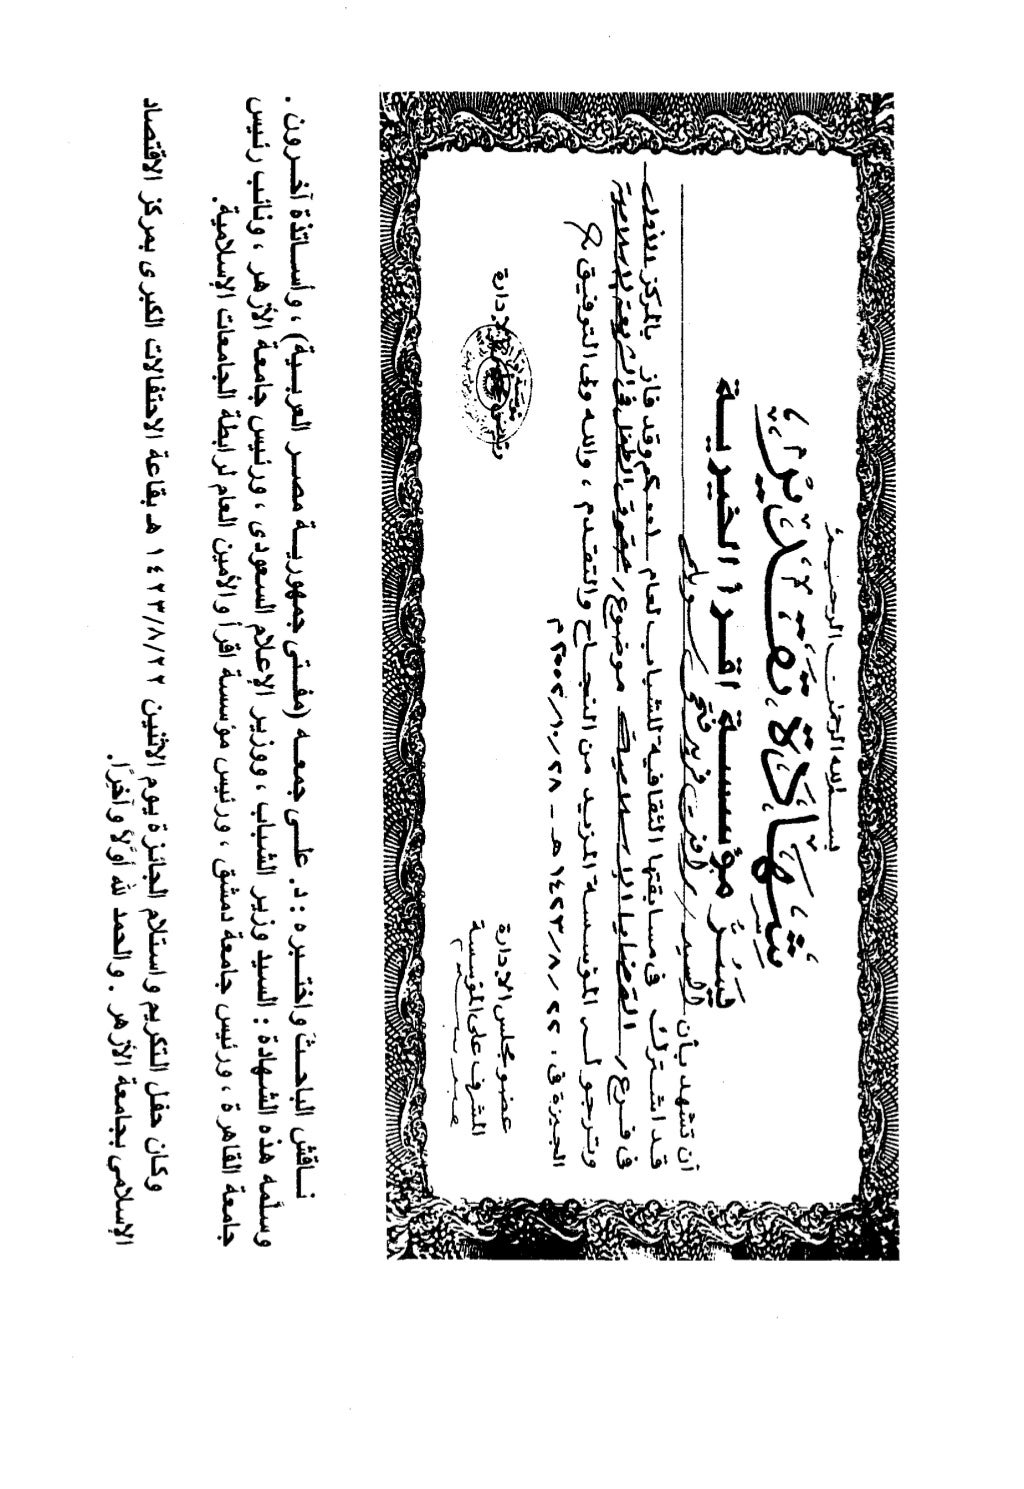 بسم الله الرحمن الرحيم
شهادة تقدير
تسر مؤسسة اقرأ الخيرية
أن تشهد بأن السيد / رأفت فريد سويلم
قد اشترك في مسابقتها الثقافية للشباب لعام وقد فاز بالمركز الأول
في فرع / القضايا الإسلامية موضوع / حقوق الطفل في الشريعة الإسلامية
وترجو له المؤسسة المزيد من النجاح والتقدم ، والله ولى التوفيق
الجيزة في : ٢٢ / ٨ / ١٤٢٣ هـ - ٢٨ / ١٠ / ٢٠٠٢ م
عضو مجلس الإدارة
المشرف على المؤسسة
الإدارة
ناقش الباحث واختبره : د. على جمعه (مفتى جمهورية مصر العربية) ، وأساتذة آخرون .
وسلَّمه هذه الشهادة : السيد وزير الشباب ، ووزير الإعلام السعودى ، ورئيس جامعة الأزهر ، ونائب رئيس
جامعة القاهرة ، ورئيس جامعة دمشق ، ورئيس مؤسسة اقرأ والأمين العام لرابطة الجامعات الإسلامية.
وكان حفل التكريم واستلام الجائزة يوم الاثنين ١٤٢٣/٨/٢٢ هـ بقاعة الاحتفالات الكبرى بمركز الاقتصاد
الإسلامي بجامعة الأزهر . والحمد لله أولاً وآخرًا.